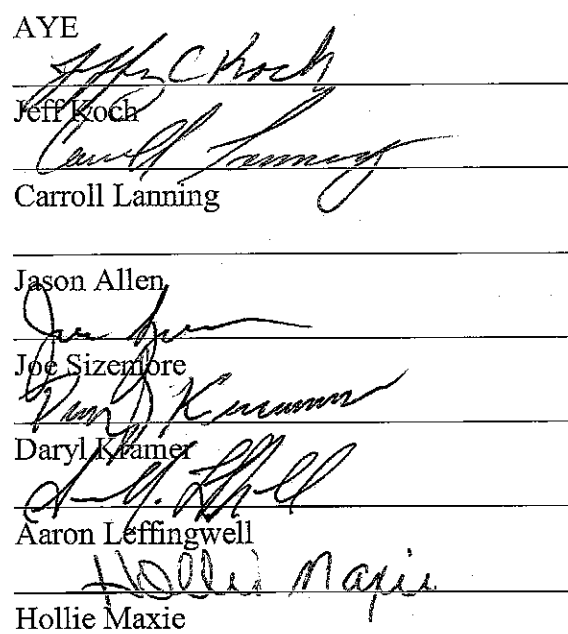 AYE
Jeff C Koch
Jeff Koch
Carroll Lanning
Carroll Lanning
Jason Allen
Joe Sizemore
Daryl Kramer
Aaron Leffingwell
Hollie Maxie
Hollie Maxie